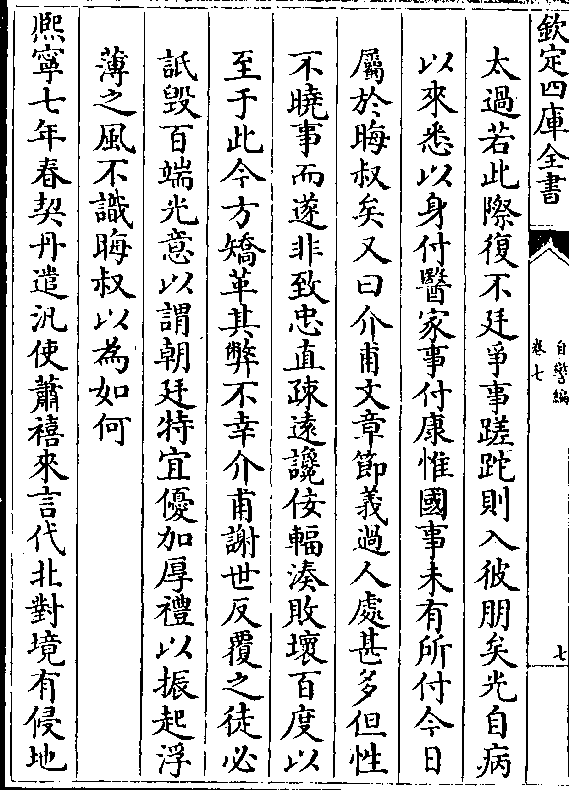 欽定四庫全書
自警編
卷七
七
太過若此際復不廷爭事蹉跎則入彼朋矣光自病
以來悉以身付醫家事付康惟國事未有所付今日
屬於晦叔矣又曰介甫文章節義過人處甚多但性
不曉事而遂非致忠直疎遠讒佞輻湊敗壞百度以
至于此今方矯革其弊不幸介甫謝世反覆之徒必
詆毀百端光意以謂朝廷特宜優加厚禮以振起浮
薄之風不識晦叔以為如何
熈寧七年春契丹遣汎使蕭禧來言代北對境有侵地